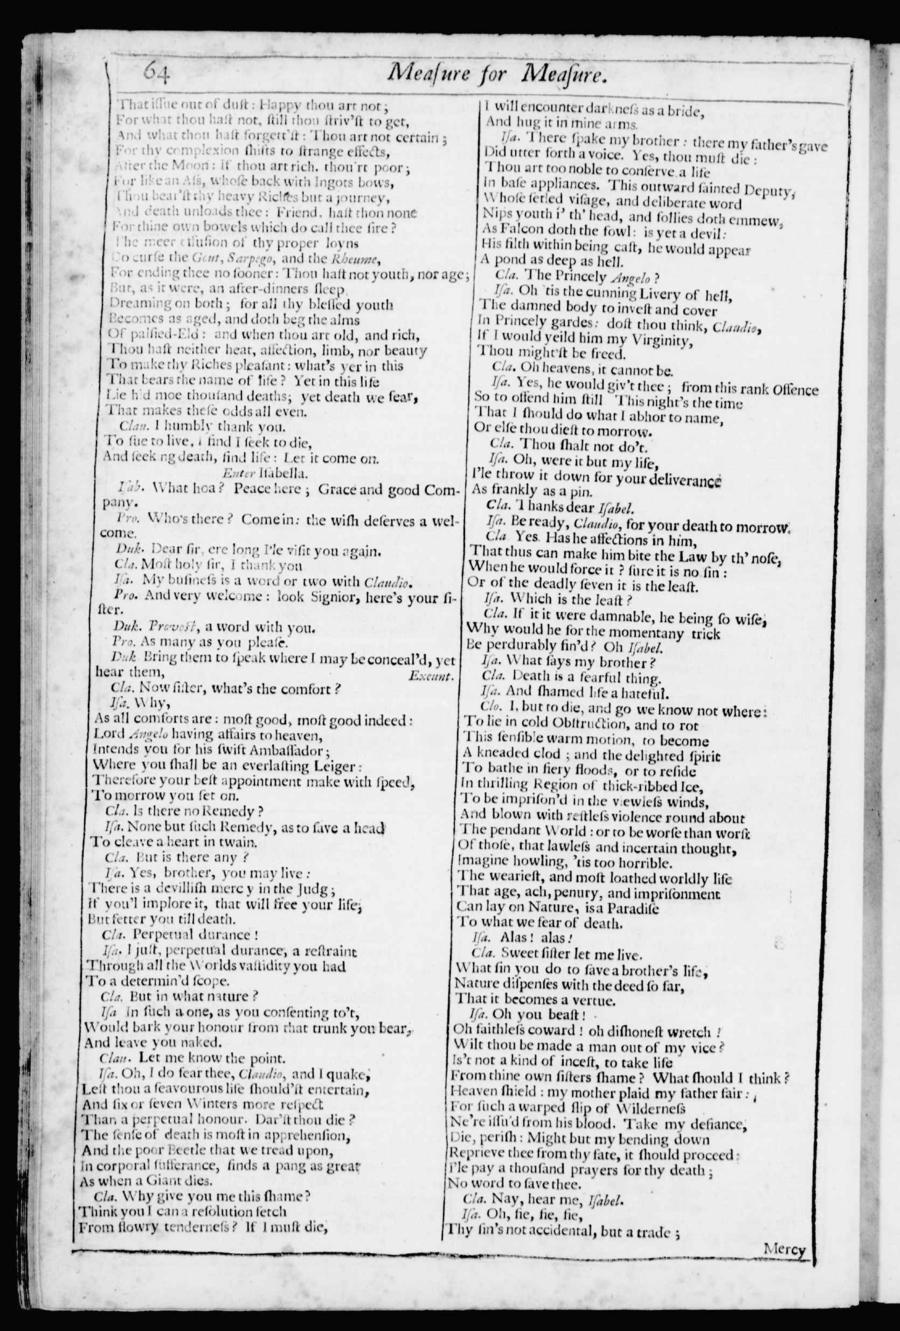 64
Meaſure for Meaſure.
That iſſue out of duſt: Happy thou art not;
For what thou haſt not, ſtill thou ſtriv'ſt to get,
And what thou haſt forgett'ſt: Thou art not certain;
For thy complexion ſhifts to ſtrange effects,
After the Moon: if thou art rich, thou'rt poor;
For like an Aſs, whoſe back with Ingots bows,
Thou bear'ſt thy heavy Riches but a journey,
And death unloads thee: Friend, haſt thou none
For thine own bowels which do call thee fire?
The meer effuſion of thy proper loyns
Do curſe the Gout, Sarpego, and the Rheume,
For ending thee no ſooner: Thou haſt not youth, nor age;
But, as it were, an after-dinners ſleep
Dreaming on both; for all thy bleſſed youth
Becomes as aged, and doth beg the alms
Of palſied-Eld: and when thou art old, and rich,
Thou haſt neither heat, affection, limb, nor beauty
To make thy Riches pleaſant: what's yer in this
That bears the name of life? Yet in this life
Lie h'd moe thouſand deaths; yet death we fear,
That makes theſe odds all even.
Clau. I humbly thank you.
To ſue to live, I find I ſeek to die,
And ſeeking death, find life: Let it come on.
Enter Iſabella.
Iſab. What hoa? Peace here; Grace and good Com-
pany.
Pro. Who's there? Come in: the wiſh deſerves a wel-
come.
Duk. Dear ſir, ere long I'le viſit you again.
Cla. Moſt holy ſir, I thank you
Iſa. My buſineſs is a word or two with Claudio.
Pro. And very welcome: look Signior, here's your ſi-
ſter.
Duk. Provoſt, a word with you.
Pro. As many as you pleaſe.
Duk Bring them to ſpeak where I may be conceal'd, yet
hear them, Exeunt.
Cla. Now ſiſter, what's the comfort?
Iſa. Why,
As all comforts are: moſt good, moſt good indeed:
Lord Angelo having affairs to heaven,
Intends you for his ſwift Ambaſſador;
Where you ſhall be an everlaſting Leiger:
Therefore your beſt appointment make with ſpeed,
To morrow you ſet on.
Cla. Is there no Remedy?
Iſa. None but ſuch Remedy, as to ſave a head
To cleave a heart in twain.
Cla. But is there any?
Iſa. Yes, brother, you may live:
There is a devilliſh mercy in the Judg;
If you'l implore it, that will free your life;
But fetter you till death.
Cla. Perpetual durance!
Iſa. I juſt, perpetual durance, a reſtraint
Through all the Worlds vaſtidity you had
To a determin'd ſcope.
Cla. But in what nature?
Iſa In ſuch a one, as you conſenting to't,
Would bark your honour from that trunk you bear,
And leave you naked.
Clau. Let me know the point.
Iſa. Oh, I do fear thee, Claudio, and I quake,
Leſt thou a feavourous life ſhould'ſt entertain,
And ſix or ſeven Winters more reſpect
Than a perpetual honour. Dar'ſt thou die?
The ſenſe of death is moſt in apprehenſion,
And the poor Beetle that we tread upon,
In corporal ſufferance, finds a pang as great
As when a Giant dies.
Cla. Why give you me this ſhame?
Think you I can a reſolution fetch
From flowry tenderneſs? If I muſt die,
I will encounter darkneſs as a bride,
And hug it in mine arms.
Iſa. There ſpake my brother: there my father's gave
Did utter forth a voice. Yes, thou muſt die:
Thou art too noble to conſerve a life
In baſe appliances. This outward ſainted Deputy,
Whoſe ſetled viſage, and deliberate word
Nips youth i' th' head, and follies doth emmew,
As Falcon doth the fowl: is yet a devil:
His filth within being caſt, he would appear
A pond as deep as hell.
Cla. The Princely Angelo?
Iſa. Oh 'tis the cunning Livery of hell,
The damned body to inveſt and cover
In Princely gardes: doſt thou think, Claudio,
If I would yeild him my Virginity,
Thou might'ſt be freed.
Cla. Oh heavens, it cannot be.
Iſa. Yes, he would giv't thee; from this rank Offence
So to offend him ſtill This night's the time
That I ſhould do what I abhor to name,
Or elſe thou dieſt to morrow.
Cla. Thou ſhalt not do't.
Iſa. Oh, were it but my life,
I'le throw it down for your deliverance
As frankly as a pin.
Cla. Thanks dear Iſabel.
Iſa. Be ready, Claudio, for your death to morrow.
Cla Yes. Has he affections in him,
That thus can make him bite the Law by th' noſe,
When he would force it? ſure it is no ſin:
Or of the deadly ſeven it is the leaſt.
Iſa. Which is the leaſt?
Cla. If it it were damnable, he being ſo wiſe,
Why would he for the momentany trick
Be perdurably fin'd? Oh Iſabel.
Iſa. What ſays my brother?
Cla. Death is a fearful thing.
Iſa. And ſhamed life a hateful.
Clo. I, but to die, and go we know not where:
To lie in cold Obſtruction, and to rot
This ſenſible warm motion, to become
A kneaded clod; and the delighted ſpirit
To bathe in fiery floods, or to reſide
In thrilling Region of thick-ribbed Ice,
To be impriſon'd in the viewleſs winds,
And blown with reſtleſs violence round about
The pendant World: or to be worſe than worſt
Of thoſe, that lawleſs and incertain thought,
Imagine howling, 'tis too horrible.
The wearieſt, and moſt loathed worldly life
That age, ach, penury, and impriſonment
Can lay on Nature, is a Paradiſe
To what we fear of death.
Iſa. Alas! alas!
Cla. Sweet ſiſter let me live.
What ſin you do to ſave a brother's life,
Nature diſpenſes with the deed ſo far,
That it becomes a vertue.
Iſa. Oh you beaſt!
Oh faithleſs coward! oh diſhoneſt wretch!
Wilt thou be made a man out of my vice?
Is't not a kind of inceſt, to take life
From thine own ſiſters ſhame? What ſhould I think?
Heaven ſhield: my mother plaid my father fair:
For ſuch a warped ſlip of Wilderneſs
Ne're iſſu'd from his blood. Take my defiance,
Die, periſh: Might but my bending down
Reprieve thee from thy fate, it ſhould proceed:
I'le pay a thouſand prayers for thy death;
No word to ſave thee.
Cla. Nay, hear me, Iſabel.
Iſa. Oh, fie, fie, fie,
Thy ſin's not accidental, but a trade;
Mercy